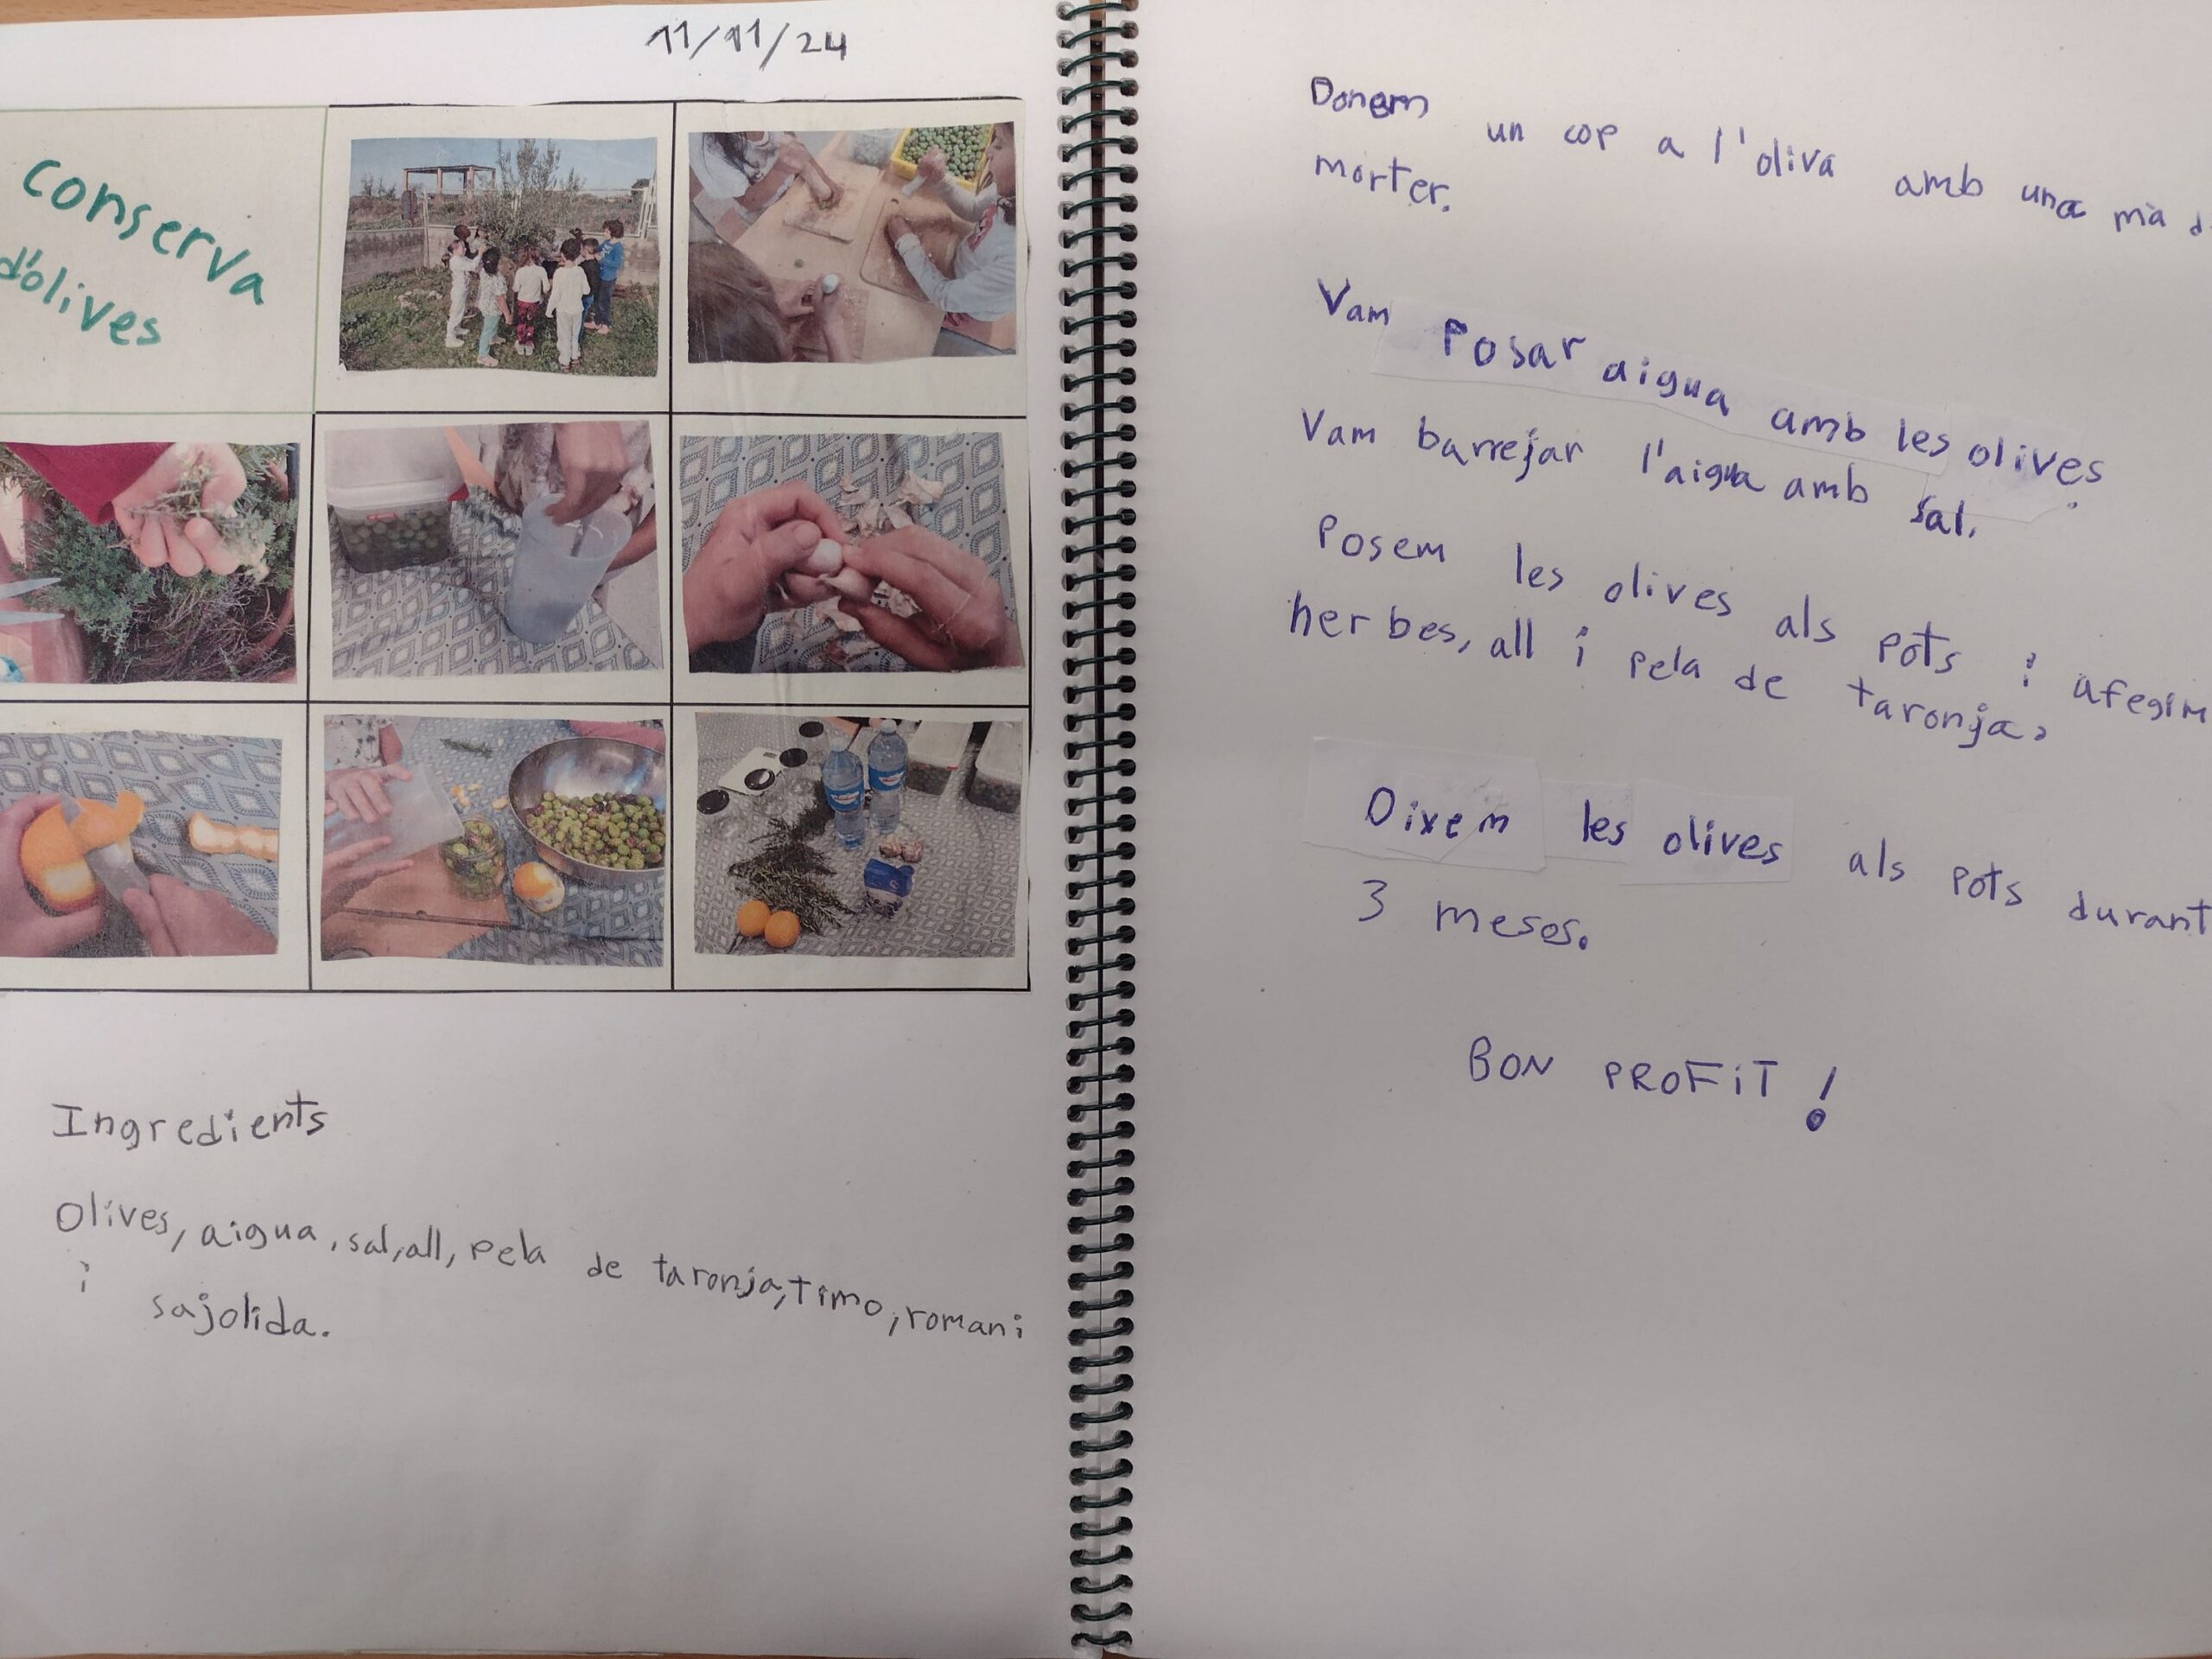 11/11/24
conserva
d'olives
Ingredients
Olives, aigua, sal, all, pela de taronja, timo, romani
i sajolida.
Donem un cop a l'oliva amb una mà d
morter.
Vam posar aigua amb les olives.
Vam barrejar l'aigua amb sal.
Posem les olives als pots i afegim
herbes, all i pela de taronja.
Dixem les olives als pots durant
3 mesos.
BON PROFiT!